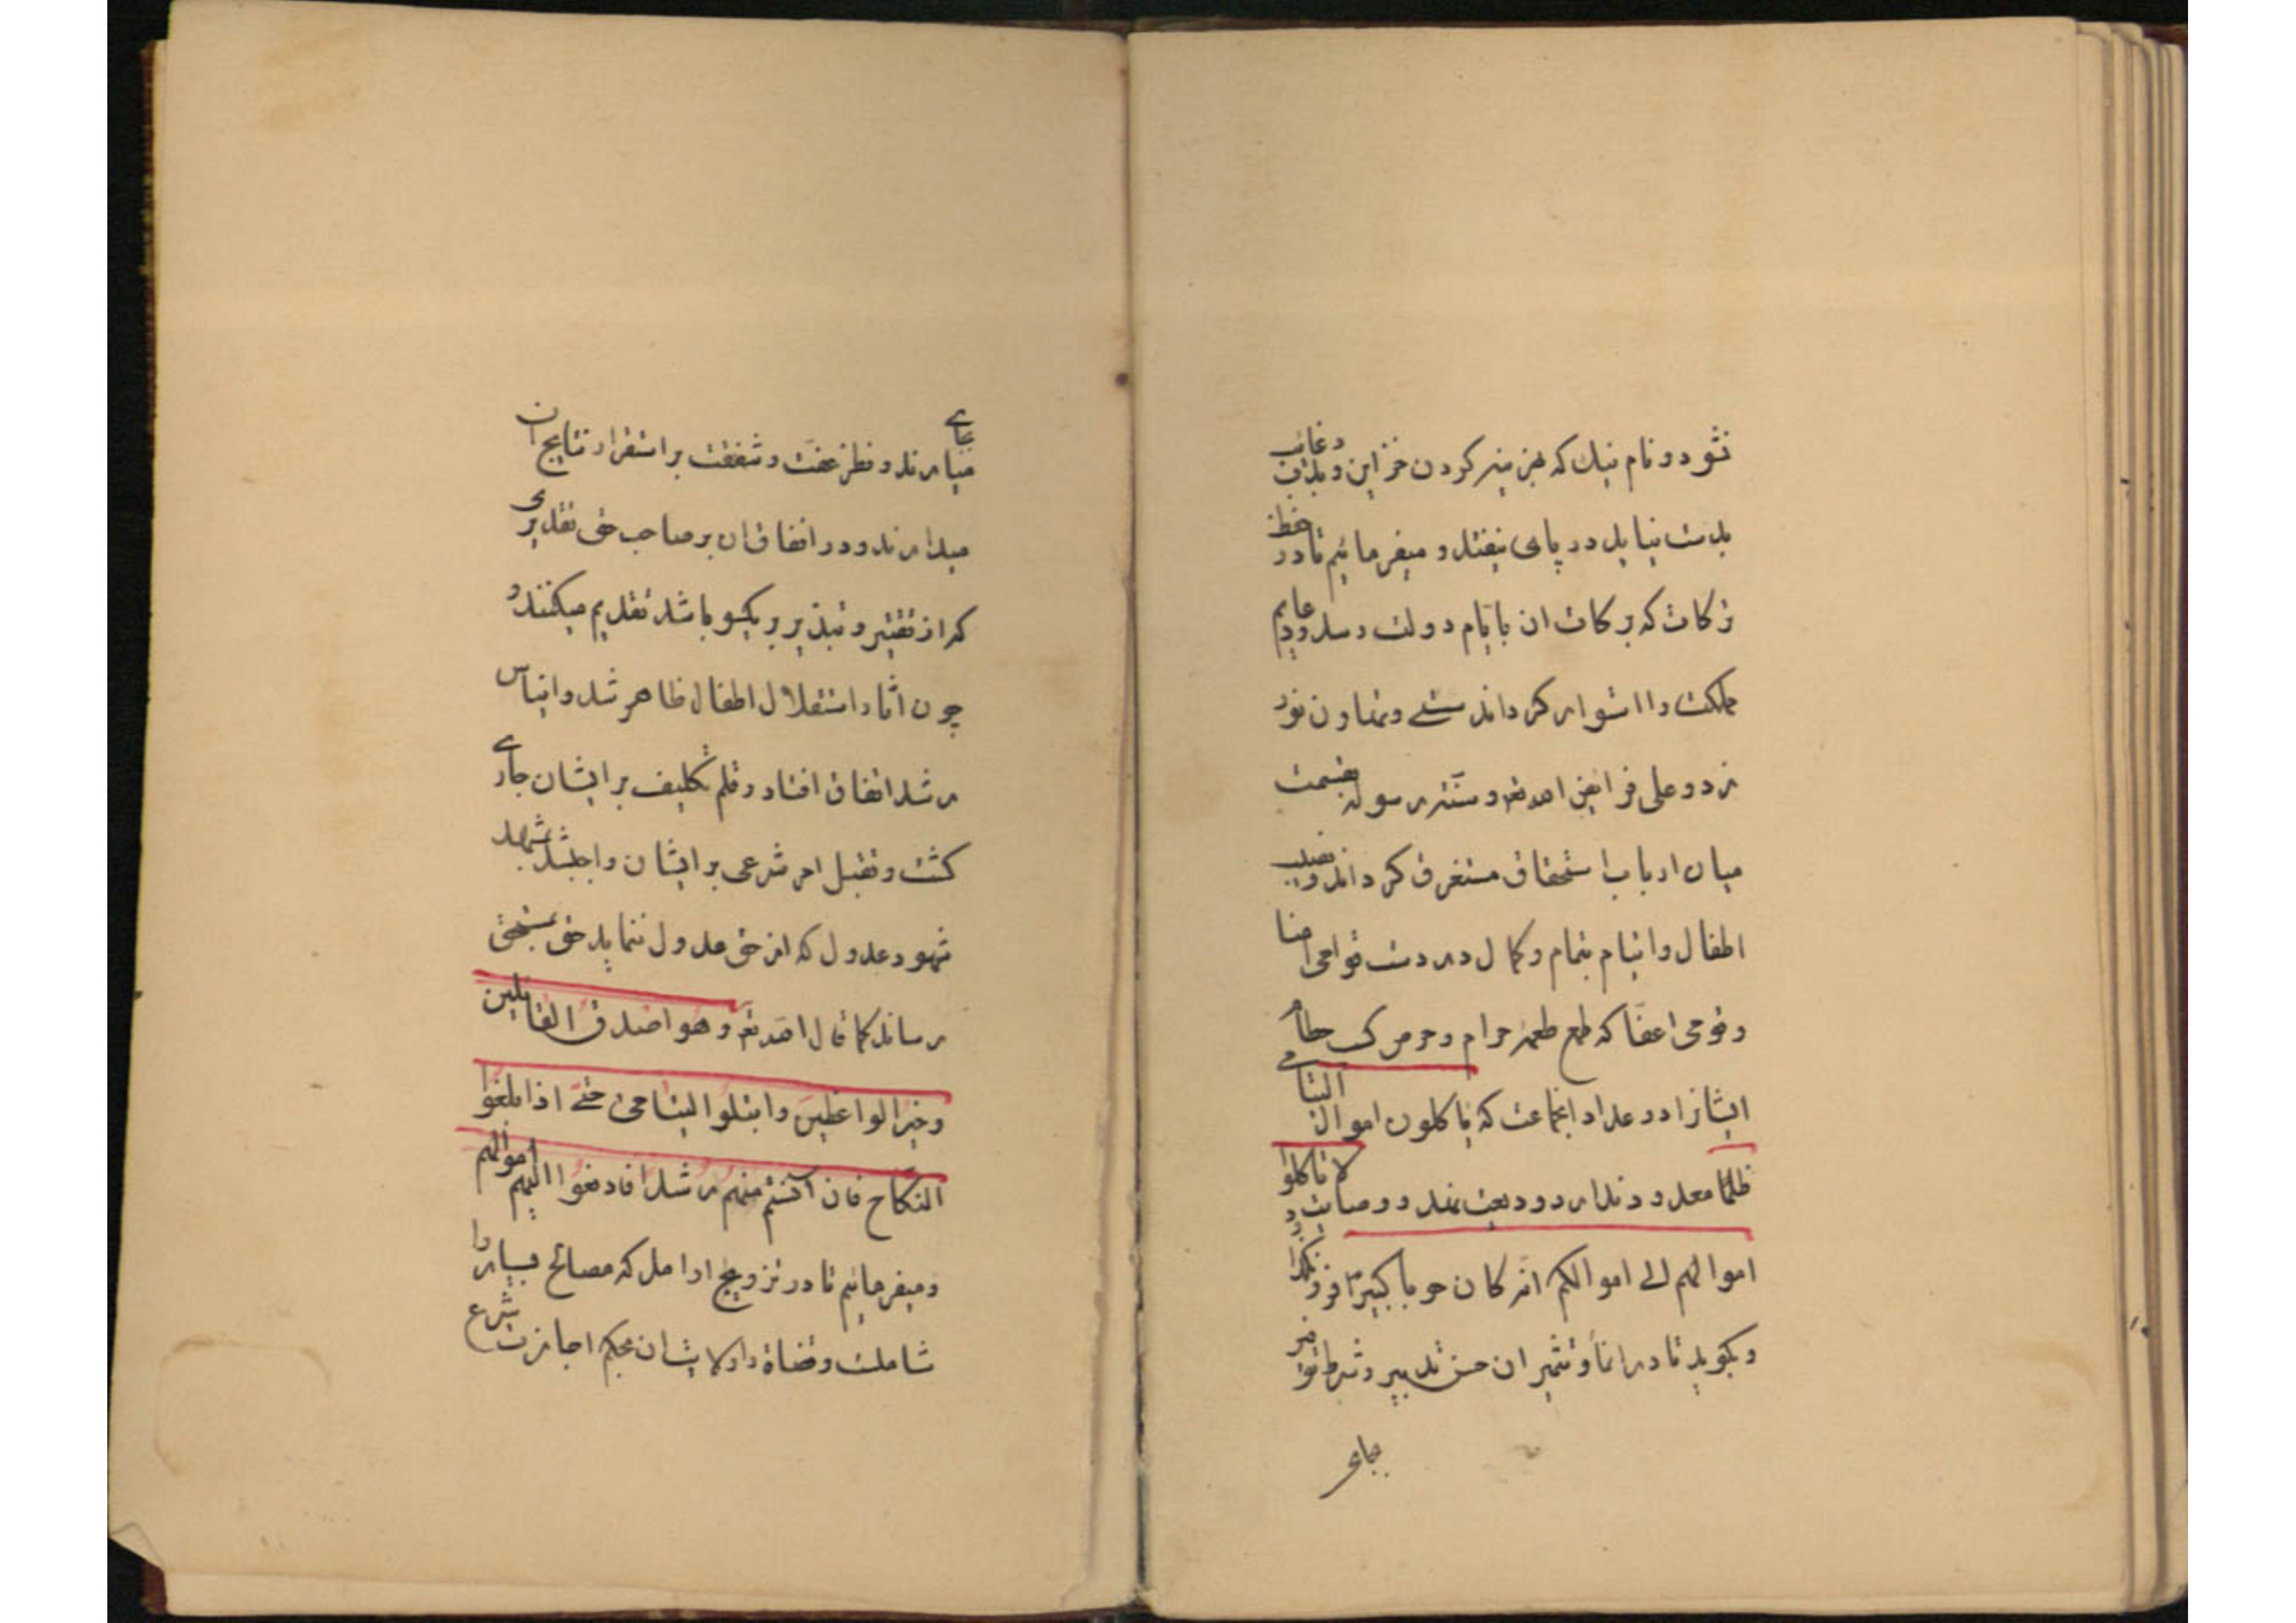 نشود و نام نیک که بجز بنیر کردن خزاین و بذل رغایب
بدست نیاید در پای نیفتد و میفرمائیم تا در حفظ
زکات که برکات ان بایام دولت رسد و دعایم
مملکت را استوار کرداند سستی و تهاون نورزد
و علی فرایض الله تع و سنة رسوله بقسمت
میان ارباب استحقاق مستغرق کرداند و نصیب
اطفال و ایتام بتمام و کمال در دست قوامی امنا
و قومی اعفا که طمع طعمه حرام و جرم کسب حطام
ایشانرا در عداد انجماعت که یاکلون اموال الیتامی
ظلما معدود ندارد ودیعت نهد و وصایت و لا تاکلوا
اموالهم الی اموالکم انه کان حوبا کبیرا فرو نکذارد
و بکوید تا در انما و تثمیر ان حسن تدبیر و شرط توفیر
بجای
بجای میارند و نظر عفت و شفقت بر استقرار نتایج ان
میدارند و در انفاق ان بر صاحب حق تقدیری
که از تقتیر و تبذیر بر یکسو باشد تقدیم میکنند و
چون اثار استقلال اطفال ظاهر شد و ایناس
رشد اتفاق افتاد و قلم تکلیف بر ایشان جاری
کشت و تقبل امر شرعی بر ایشان واجب شد بمشهد
شهود عدول که از حق عدول ننماید حق بمستحق
رساند کما قال الله تع و هو اصدق القایلین
و خیر الواعظین وابتلوا الیتامی حتی اذا بلغوا
النکاح فان آنستم منهم رشدا فادفعوا الیهم اموالهم
و میفرمائیم تا در تزویج ارامل که مصالح بسیار را
شاملست و قضاة را ولایت ان بحکم اجازت شرع